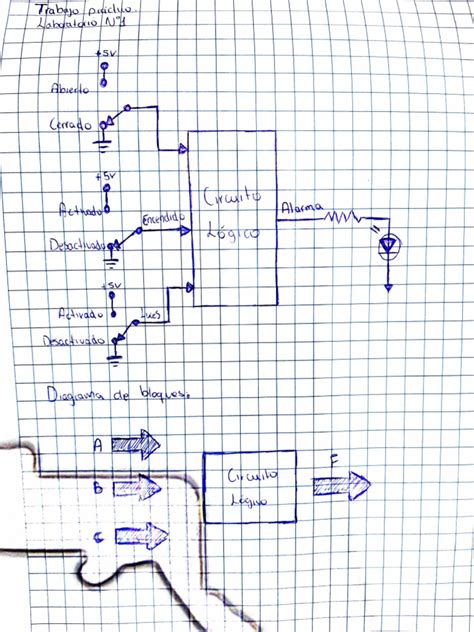 Trabajo práctico
Laboratorio N°1
+5V
Abierto
Cerrado
+5V
Activado
Encendido
Desactivado
+5V
Activado
Luces
Desactivado
Circuito
Lógico
Alarma
Diagrama de bloques.
A
B
C
Circuito
Lógico
F